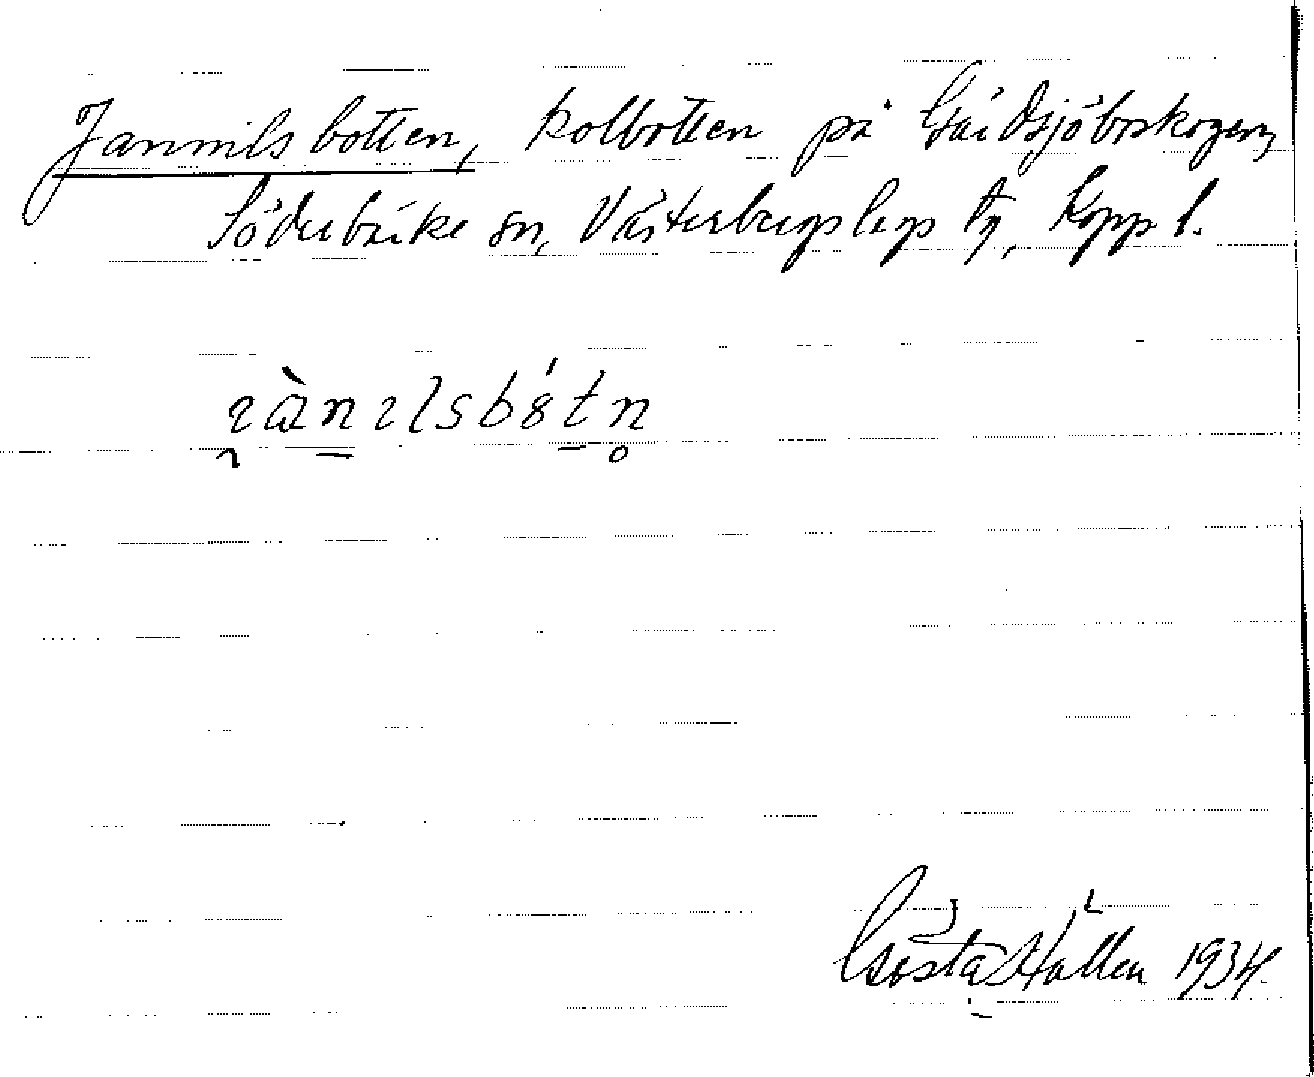 Jannilsbotten, kolbotten på Gäddsjöboskogen,
Söderbärke sn, Västerbergslags tg, Kopp l.
Gösta Hallen 1934.